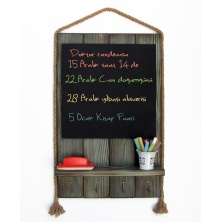 Doktor randevusu
15 Aralık saat 14 de
22 Aralık Can doğumgünü
28 Aralık yılbaşı alışverişi
5 Ocak Kitap Fuarı